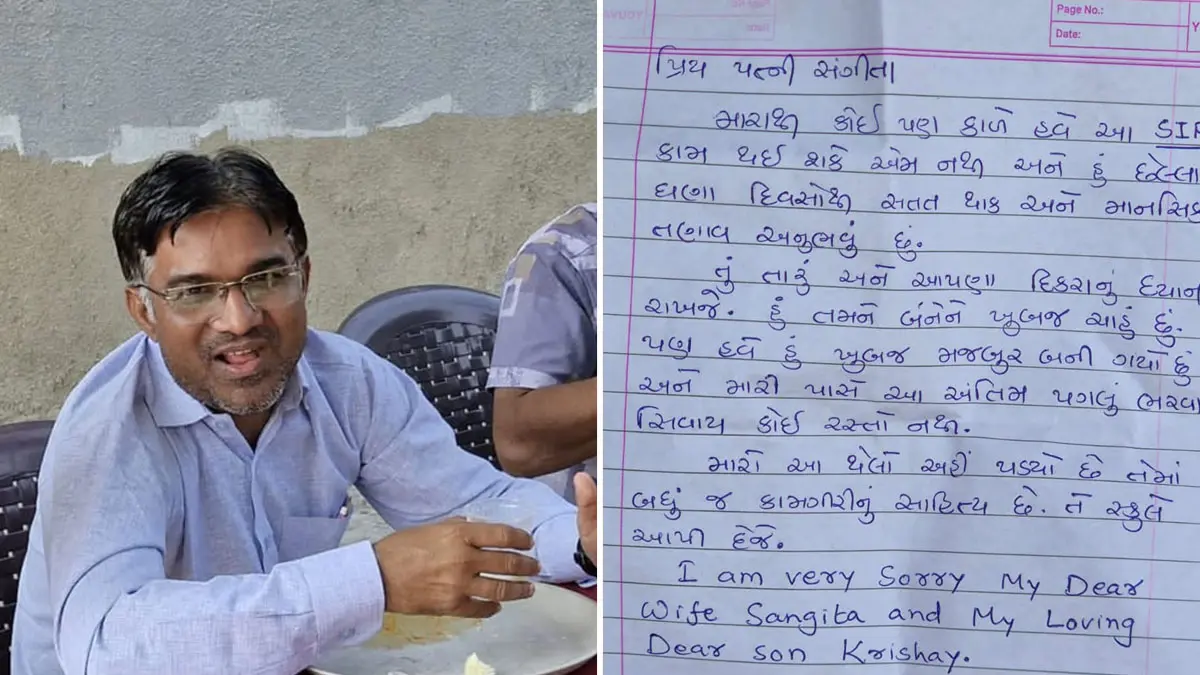 Page No.:
Date:
પ્રિય પત્ની સંગીતા
મારાથી કોઈ પણ કાળે હવે આ SIR
કામ થઈ શકે એમ નથી અને હું છેલ્લા
ઘણા દિવસોથી સતત થાક અને માનસિક
તણાવ અનુભવું છું.
તું તારું અને આપણા દિકરાનું ધ્યાન
રાખજે. હું તમને બંનેને ખુબજ ચાહું છું.
પણ હવે હું ખુબજ મજબુર બની ગયો છું
અને મારી પાસે આ અંતિમ પગલું ભરવા
સિવાય કોઈ રસ્તો નથી.
મારો આ થેલો અહીં પડ્યો છે તેમાં
બધું જ કામગીરીનું સાહિત્ય છે. તે સ્કુલે
આપી દેજે.
I am very Sorry My Dear
Wife Sangita and My Loving
Dear son Krishay.